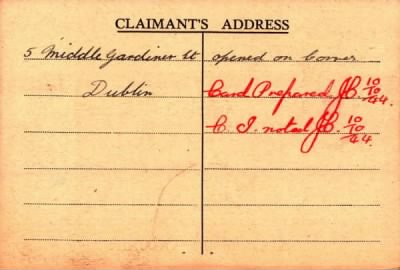 CLAIMANT'S ADDRESS
5 Middle Gardiner St
Dublin
opened on Cover
Card Prepared JC 10/10/44.
C. I. noted JC 10/10/44.